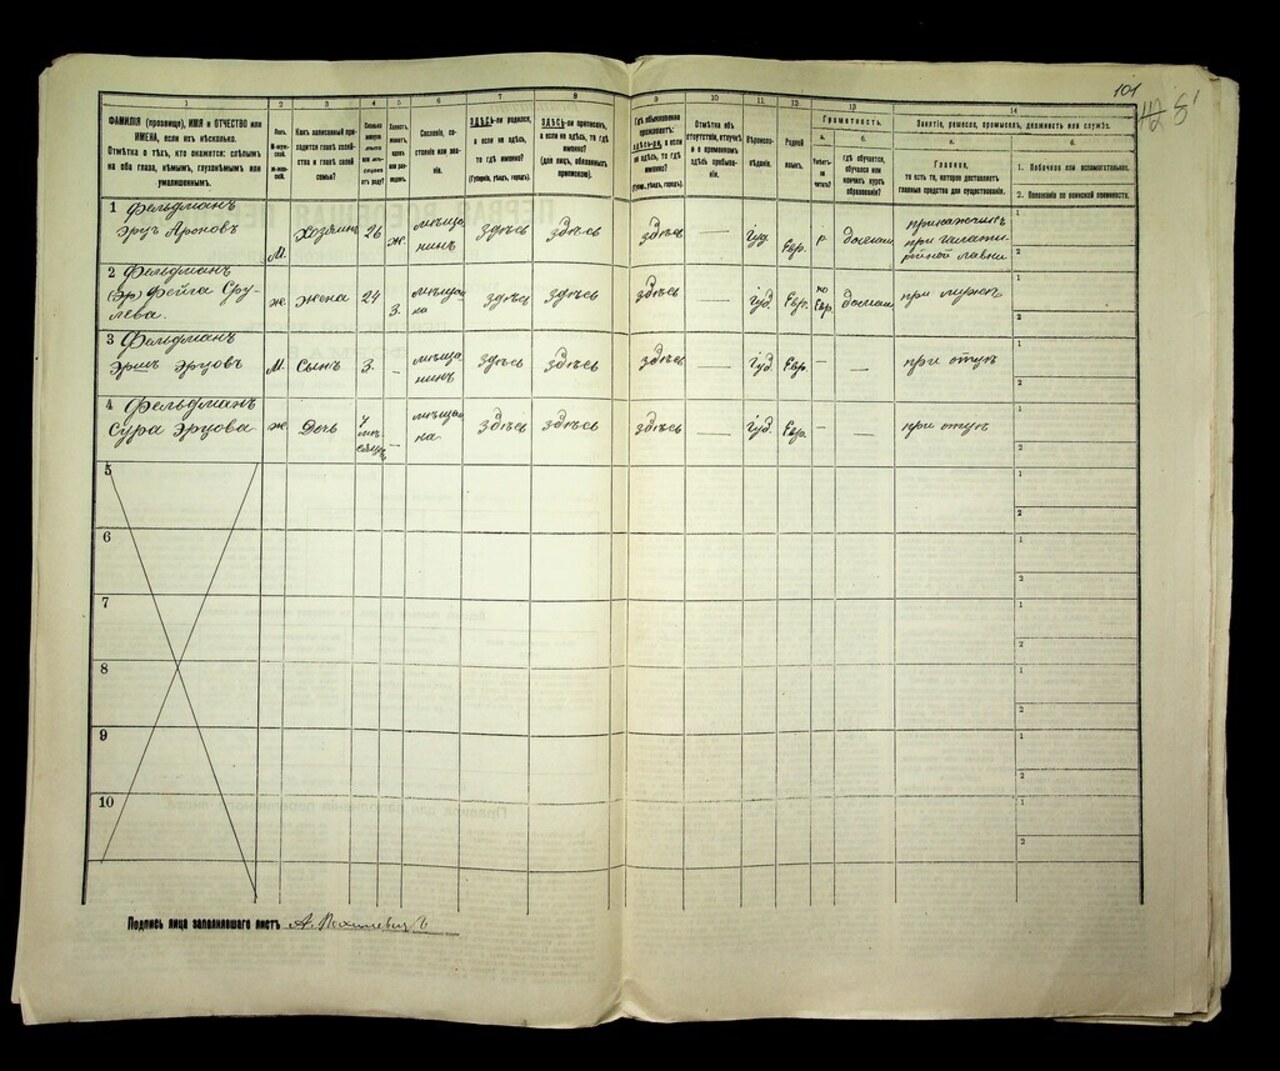 101
1
2
3
4
5
6
7
8
9
10
11.
12.
13
14
ФАМИЛІЯ (прозвище), ИМЯ и ОТЧЕСТВО или
ИМЕНА, если ихъ нѣсколько.
Отмѣтка о тѣхъ, кто окажется: слѣпымъ
на оба глаза, нѣмымъ, глухонѣмымъ или
умалишеннымъ.
Полъ.
М-муж-
ской.
Ж-жен-
скій.
Какъ записанный при-
ходится главѣ хозяй-
ства и главѣ своей
семьи?
Сколько
минуло
лѣтъ
отъ роду?
Холостъ,
женатъ,
вдовъ
или раз-
веденъ.
Сословіе, со-
стояніе или зва-
ніе.
ЗДѢСЬ-ли родился,
а если не здѣсь,
то гдѣ именно?
(Губернія, уѣздъ, городъ).
ЗДѢСЬ-ли приписанъ,
а если не здѣсь, то гдѣ
именно?
(для лицъ, обязанныхъ
припискою).
Гдѣ обыкновенно
проживаетъ:
здѣсь-ли, а если
не здѣсь, то гдѣ
именно?
(Губер., уѣздъ, городъ).
Отмѣтка объ
отсутствіи, отлучкѣ
и о временномъ
здѣсь пребыва-
ніи.
Вѣроиспо-
вѣданіе.
Родной
языкъ.
Грамотность.
а.
б.
Умѣетъ-
ли
читать?
гдѣ обучается,
обучался или
кончилъ курсъ
образованія?
Занятіе, ремесло, промыселъ, должность или служба.
а.
б.
Главное,
то есть то, которое доставляетъ
главныя средства для существованія.
1. Побочное или вспомогательное.
2. Положеніе по воинской повинности.
1 Фельдманъ
Эрцъ Ароновъ
М.
Хозяинъ
26
ж.
мѣща
нинъ
здѣсь
здѣсь
здѣсь
—
Іуд.
Евр.
Р
домашн
приказчикъ
при галанте-
рейной лавки
1
2
2 Фельдманъ
(Эр) Фейга Сру-
лева.
ж
жена
24
з.
мѣщан
ка
здѣсь
здѣсь
здѣсь
—
Іуд.
Евр.
по
Евр.
домашн
при мужѣ
1
2
3 Фельдманъ
Эршъ Эрцовъ
М.
Сынъ
3.
–
мѣща
нинъ
здѣсь
здѣсь
здѣсь
—
Іуд.
Евр.
–
—
при отцѣ
1
2
4 Фельдманъ
Сура Эрцова
ж
Дочь
7
мѣ-
сяцъ
–
мѣщан
ка
здѣсь
здѣсь
здѣсь
—
Іуд.
Евр.
–
—
при отцѣ
1
2
5
1
2
6
1
2
7
1
2
8
1
2
9
1
2
10
1
2
Подпись лица заполнявшаго листъ А.